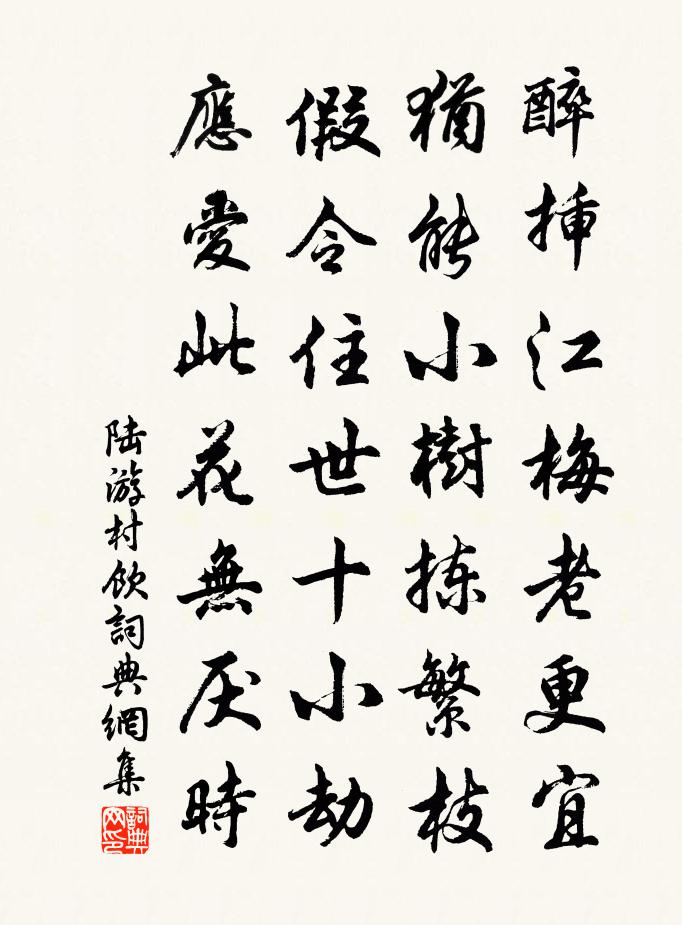 醉插江梅老更宜
猶能小樹拣繁枝
假令住世十小劫
應愛此花無厌時
陆游村飲詞典網集
詞典網印